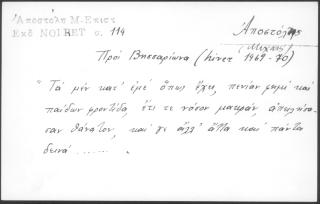 Ἀποστόλη Μ-Επισ
Εκδ NOIRET σ. 114
Ἀποστόλης
(Μιχαήλ)
Πρὸς Βησσαρίωνα (λίνετ 1469-70)
"Τὰ μὲν κατ' ἐμὲ ὅπως ἔχει, πενίαν φημὶ καὶ
παίδων φροντίδα, ἔτι τε νόσον μακράν,
σαν θάνατον, καὶ γε ἄλλ' ἄττα καὶ πάντα
δεινά .......